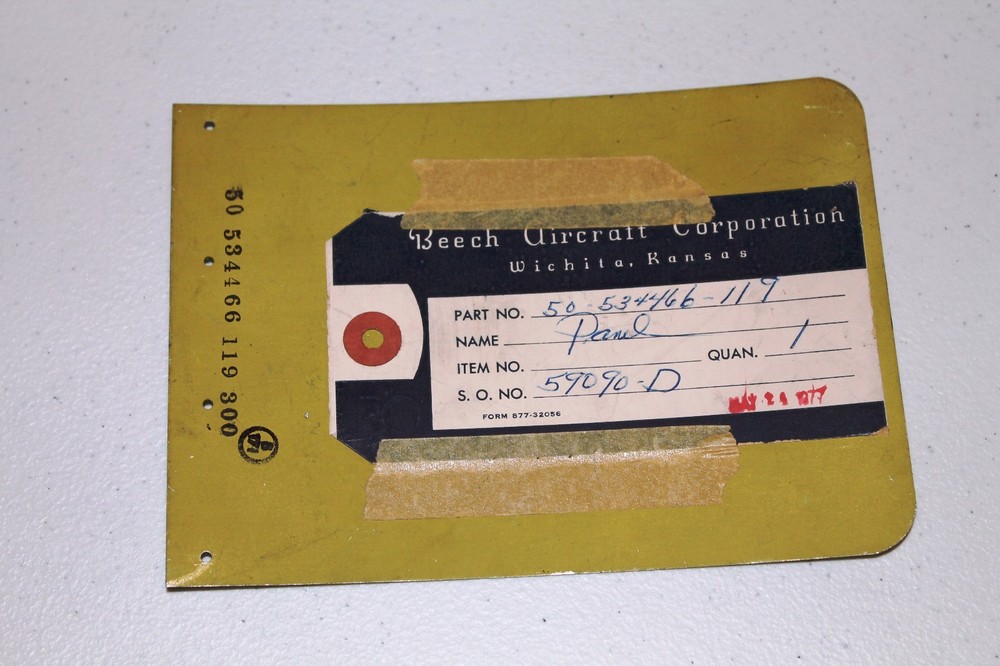 50 534466 119 300
Beech Aircraft Corporation
Wichita, Kansas
PART NO. 50-534466-119
NAME Panel
ITEM NO. QUAN. 1
S. O. NO. 59090-D
FORM 877-32056